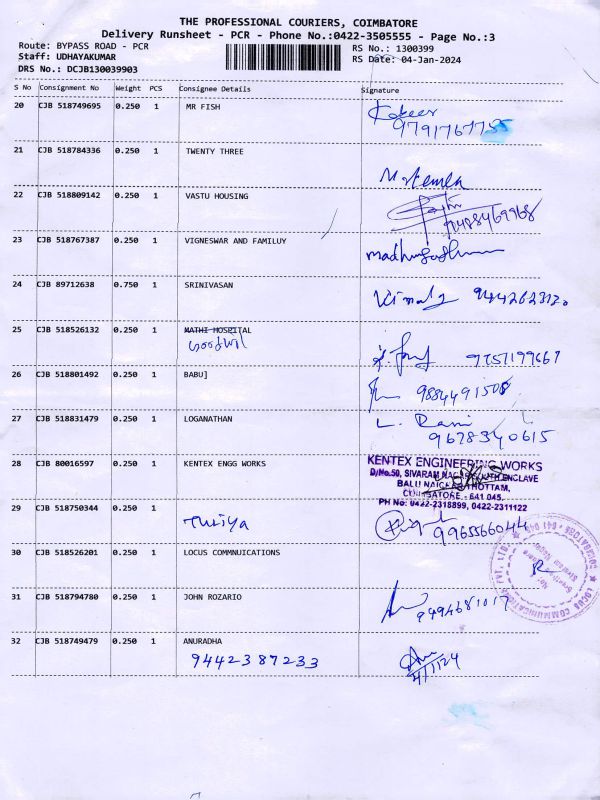 THE PROFESSIONAL COURIERS, COIMBATORE
Delivery Runsheet - PCR - Phone No.:0422-3505555 - Page No.:3
Route: BYPASS ROAD - PCR RS No.: 1300399
Staff: UDHAYAKUMAR RS Date: 04-Jan-2024
DRS No.: DCJB130039903
S No Consignment No Weight PCS Consignee Details Signature
20 CJB 518749695 0.250 1 MR FISH
21 CJB 518784336 0.250 1 TWENTY THREE
22 CJB 518809142 0.250 1 VASTU HOUSING
23 CJB 518767387 0.250 1 VIGNESWAR AND FAMILUY
24 CJB 89712638 0.750 1 SRINIVASAN
25 CJB 518526132 0.250 1 MATHI HOSPITAL
26 CJB 518801492 0.250 1 BABU]
27 CJB 518831479 0.250 1 LOGANATHAN L. Rani
9678340615
28 CJB 80016597 0.250 1 KENTEX ENGG WORKS KENTEX ENGINEERING WORKS
COIMBATORE - 641 045.
PH No: 0422-2318899, 0422-2311122
29 CJB 518750344 0.250 1
9965566044
30 CJB 518526201 0.250 1 LOCUS COMMNUICATIONS
31 CJB 518794780 0.250 1 JOHN ROZARIO
32 CJB 518749479 0.250 1 ANURADHA
9442387233 4/1/24